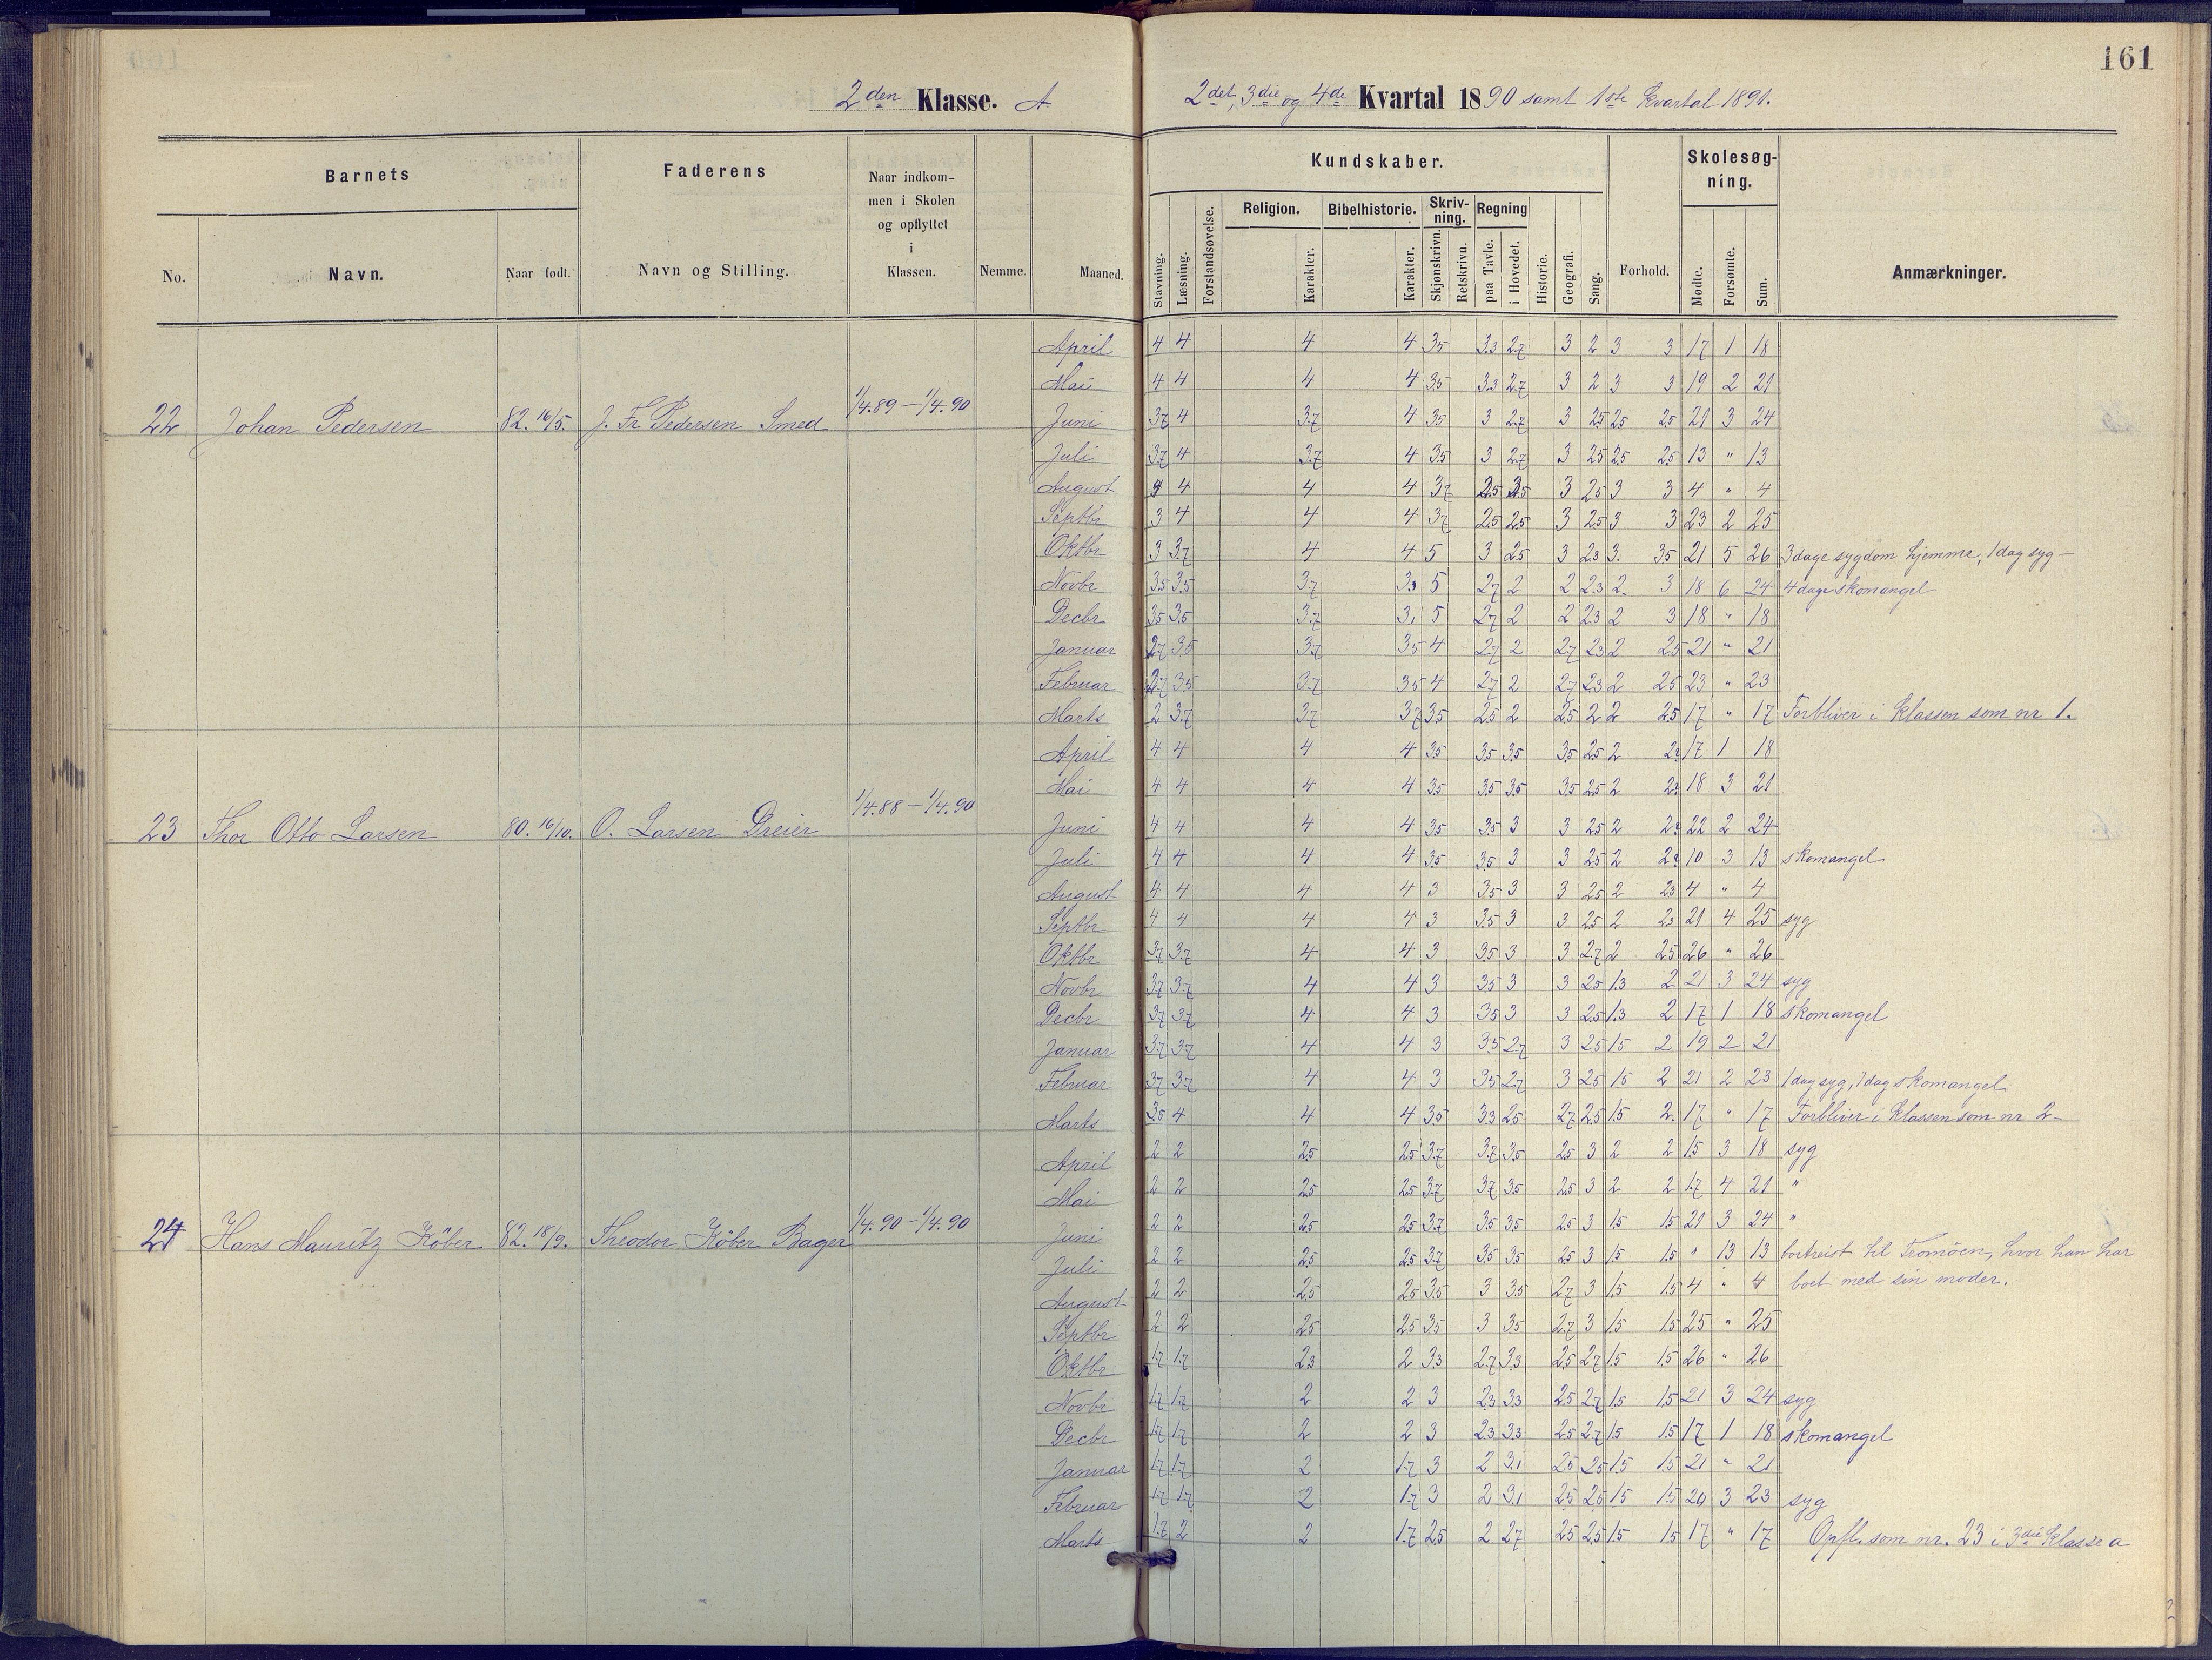 161
2den Klasse. A
2det, 3die og 4de Kvartal 1890 samt 1ste Kvartal 1891.
Barnets Faderens Naar indkom-
men i Skolen
og opflyttet
i
Klassen.
No. Navn. Naar født. Navn og Stilling. Nemme. Maaned.
Kundskaber. Skolesøg-
ning.
Religion. Bibelhistorie. Skriv-
ning. Regning
Stavning. Læsning. Forstandsøvelse. Karakter. Karakter. Skjønskrivn. Retskrivn. paa Tavle. i Hovedet. Historie. Geografi. Sang. Forhold. Mødte. Forsømte. Sum. Anmærkninger.
22 Johan Pedersen 82. 16/5. J. Fr Pedersen Smed 1/4.89 - 1/4.90
April 4 4 4 4 3.5 3.3 2.7 3 2 3 3 17 1 18
Mai 4 4 4 4 3.5 3.3 2.7 3 2 3 3 19 2 21
Juni 3.7 4 3.7 4 3.5 3 2.7 3 2.5 2.5 2.5 21 3 24
Juli 3.7 4 3.7 4 3.5 3 2.7 3 2.5 2.5 2.5 13 " 13
August 4 4 4 3.7 2.5 3 2.5 3 3 4 " 4
Septbr 3 4 4 4 3.7 2.5 2.5 3 2.5 3 3 23 2 25
Oktbr 3 3.7 4 4 5 3 2.5 3 2.3 3. 3.5 21 5 26 3 dage sygdom hjemme, 1 dag syg -
Novbr 3.5 3.5 3.7 5 2.7 2 2 2.3 2. 3 18 6 24 4 dage skomangel
Decbr 3.5 3.5 3.7 5 2.7 2 2 2.3 2 3 18 " 18
Januar 2.7 3.5 3.7 3.5 4 2.7 2 2.7 2.3 2 2.5 21 " 21
Februar 2.7 3.5 3.7 3.5 4 2.7 2 2.7 2.3 2 2.5 23 " 23
Marts 2 3.7 3.7 3.7 3.5 2.5 2 2.5 2 2 2.5 17 " 17 Forbliver i klassen som nr 1.
23 Thor Otto Larsen 80. 16/10. O. Larsen Dreier 1/4.88 - 1/4.90
April 4 4 4 4 3.5 3.5 3.5 3.5 2.5 2 17 1 18
Mai 4 4 4 4 3.5 3.5 3.5 3.5 2.5 2 18 3 21
Juni 4 4 4 4 3.5 3.5 3 3 2.5 2 22 2 24
Juli 4 4 4 4 3.5 3.5 3 3 2.5 2 10 3 13 skomangel
August 4 4 4 4 3 3.5 3 3 2.5 2 2.3 4 " 4
Septbr 4 4 4 4 3 3.5 3 3 2.5 2 2.3 21 4 25 syg
Oktbr 3.7 3.7 4 4 3 3.5 3 3 2.7 2 2.5 26 " 26
Novbr 3.7 3.7 4 4 3 3.5 3 3 2.5 1.3 2 21 3 24 syg
Decbr 3.7 3.7 4 4 3 3.5 3 3 2.5 1.3 2 17 1 18 skomangel
Januar 3.7 3.7 4 4 3 3.5 2.7 3 2.5 1.5 2 19 2 21
Februar 3.7 3.7 4 4 3 3.5 2.7 3 2.5 1.5 2 21 2 23 1 dag syg, 1 dag skomangel
Marts 3.5 4 4 4 3.5 3.3 2.5 2.7 2.5 1.5 2. 17 " 17 Forbliver i klassen som nr 2 -
24 Hans Mauritz Köber 82. 18/9. Theodor Köber Bager 1/4.90 - 1/4.90
April 2 2 2.5 2.5 3.7 3.7 3.5 2.5 3 2 2 15 3 18 syg
Mai 2 2 2.5 2.5 3.7 3.7 3.5 2.5 3 2 2 17 4 21 "
Juni 2 2 2.5 2.5 3.7 3.5 3.5 2.5 3 1.5 1.5 21 3 24 "
Juli 2 2 2.5 2.5 3.7 3.5 3.5 2.5 3 1.5 1.5 " 13 13 bortreist til Tromöen, hvor han har
boet med sin moder.
August 2 2 2.5 2.5 3.5 3 3.5 2.7 3 1.5 1.5 4 " 4
Septbr 2 2 2.5 2.5 3.5 3 3.5 2.7 3 1.5 1.5 25 " 25
Oktbr 1.7 1.7 2.3 2 3.3 2.7 3.3 2.5 2.7 1.5 1.5 26 " 26
Novbr 1.7 1.7 2 2 3 2.3 3.3 2.5 2.7 1.5 1.5 21 3 24 syg
Decbr 1.7 1.7 2 2 3 2.3 3.3 2.5 2.7 1.5 1.5 17 1 18 skomangel
Januar 1.7 1.7 2 1.7 3 2 3.1 2.5 2.5 1.5 1.5 21 " 21
Februar 1.7 1.7 2 1.7 3 2 3.1 2.5 2.5 1.5 1.5 20 3 23 syg
Marts 1.7 2 2 1.7 2.5 2 2.7 2.5 2.5 1.5 1.5 17 " 17 Opfl. som nr. 23 i 3die klasse a